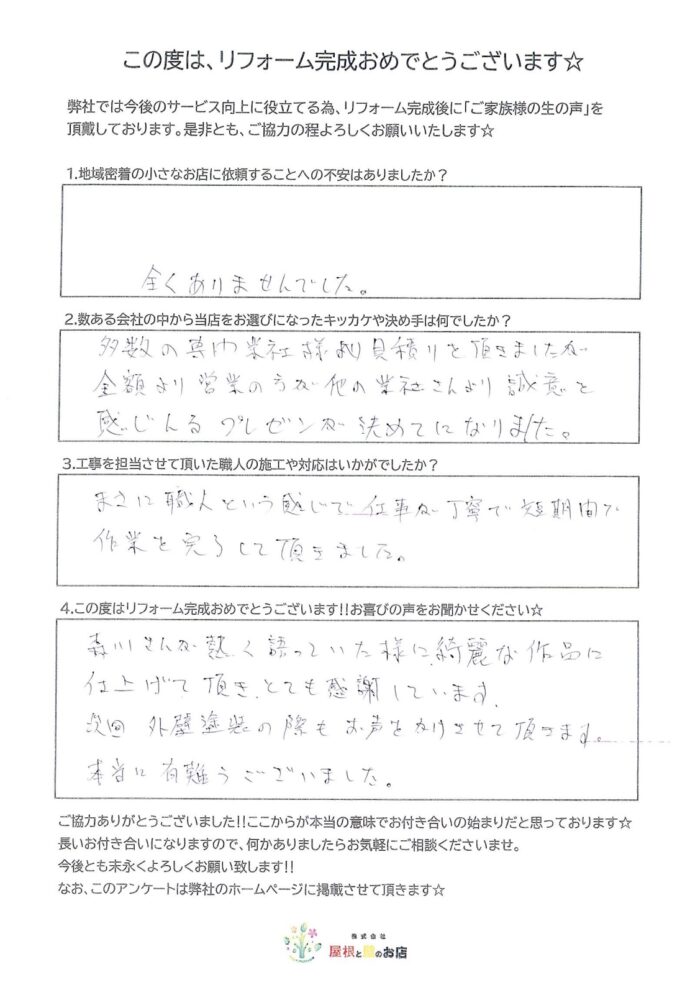 この度は、リフォーム完成おめでとうございます☆
弊社では今後のサービス向上に役立てる為、リフォーム完成後に「ご家族様の生の声」を
頂戴しております。是非とも、ご協力の程よろしくお願いいたします☆
1.地域密着の小さなお店に依頼することへの不安はありましたか？
全くありませんでした。
2.数ある会社の中から当店をお選びになったキッカケや決め手は何でしたか？
多数の専門業社様より見積りを頂きましたが
金額より営業の方が他の業社さんより誠意を
感じれるプレゼンが決めてになりました。
3.工事を担当させて頂いた職人の施工や対応はいかがでしたか？
まさに職人という感じで仕事が丁寧で短期間で
作業を完了して頂きました。
4.この度はリフォーム完成おめでとうございます!!お喜びの声をお聞かせください☆
森川さんが熱く語っていた様に、綺麗な作品に
仕上げて頂き、とても感謝しています。
次回外壁塗装の際もお声をかけさせて頂きます。
本当に有難うございました。
ご協力ありがとうございました!!ここからが本当の意味でお付き合いの始まりだと思っております☆
長いお付き合いになりますので、何かありましたらお気軽にご相談くださいませ。
今後とも末永くよろしくお願い致します!!
なお、このアンケートは弊社のホームページに掲載させて頂きます☆
株式会社
屋根と壁のお店